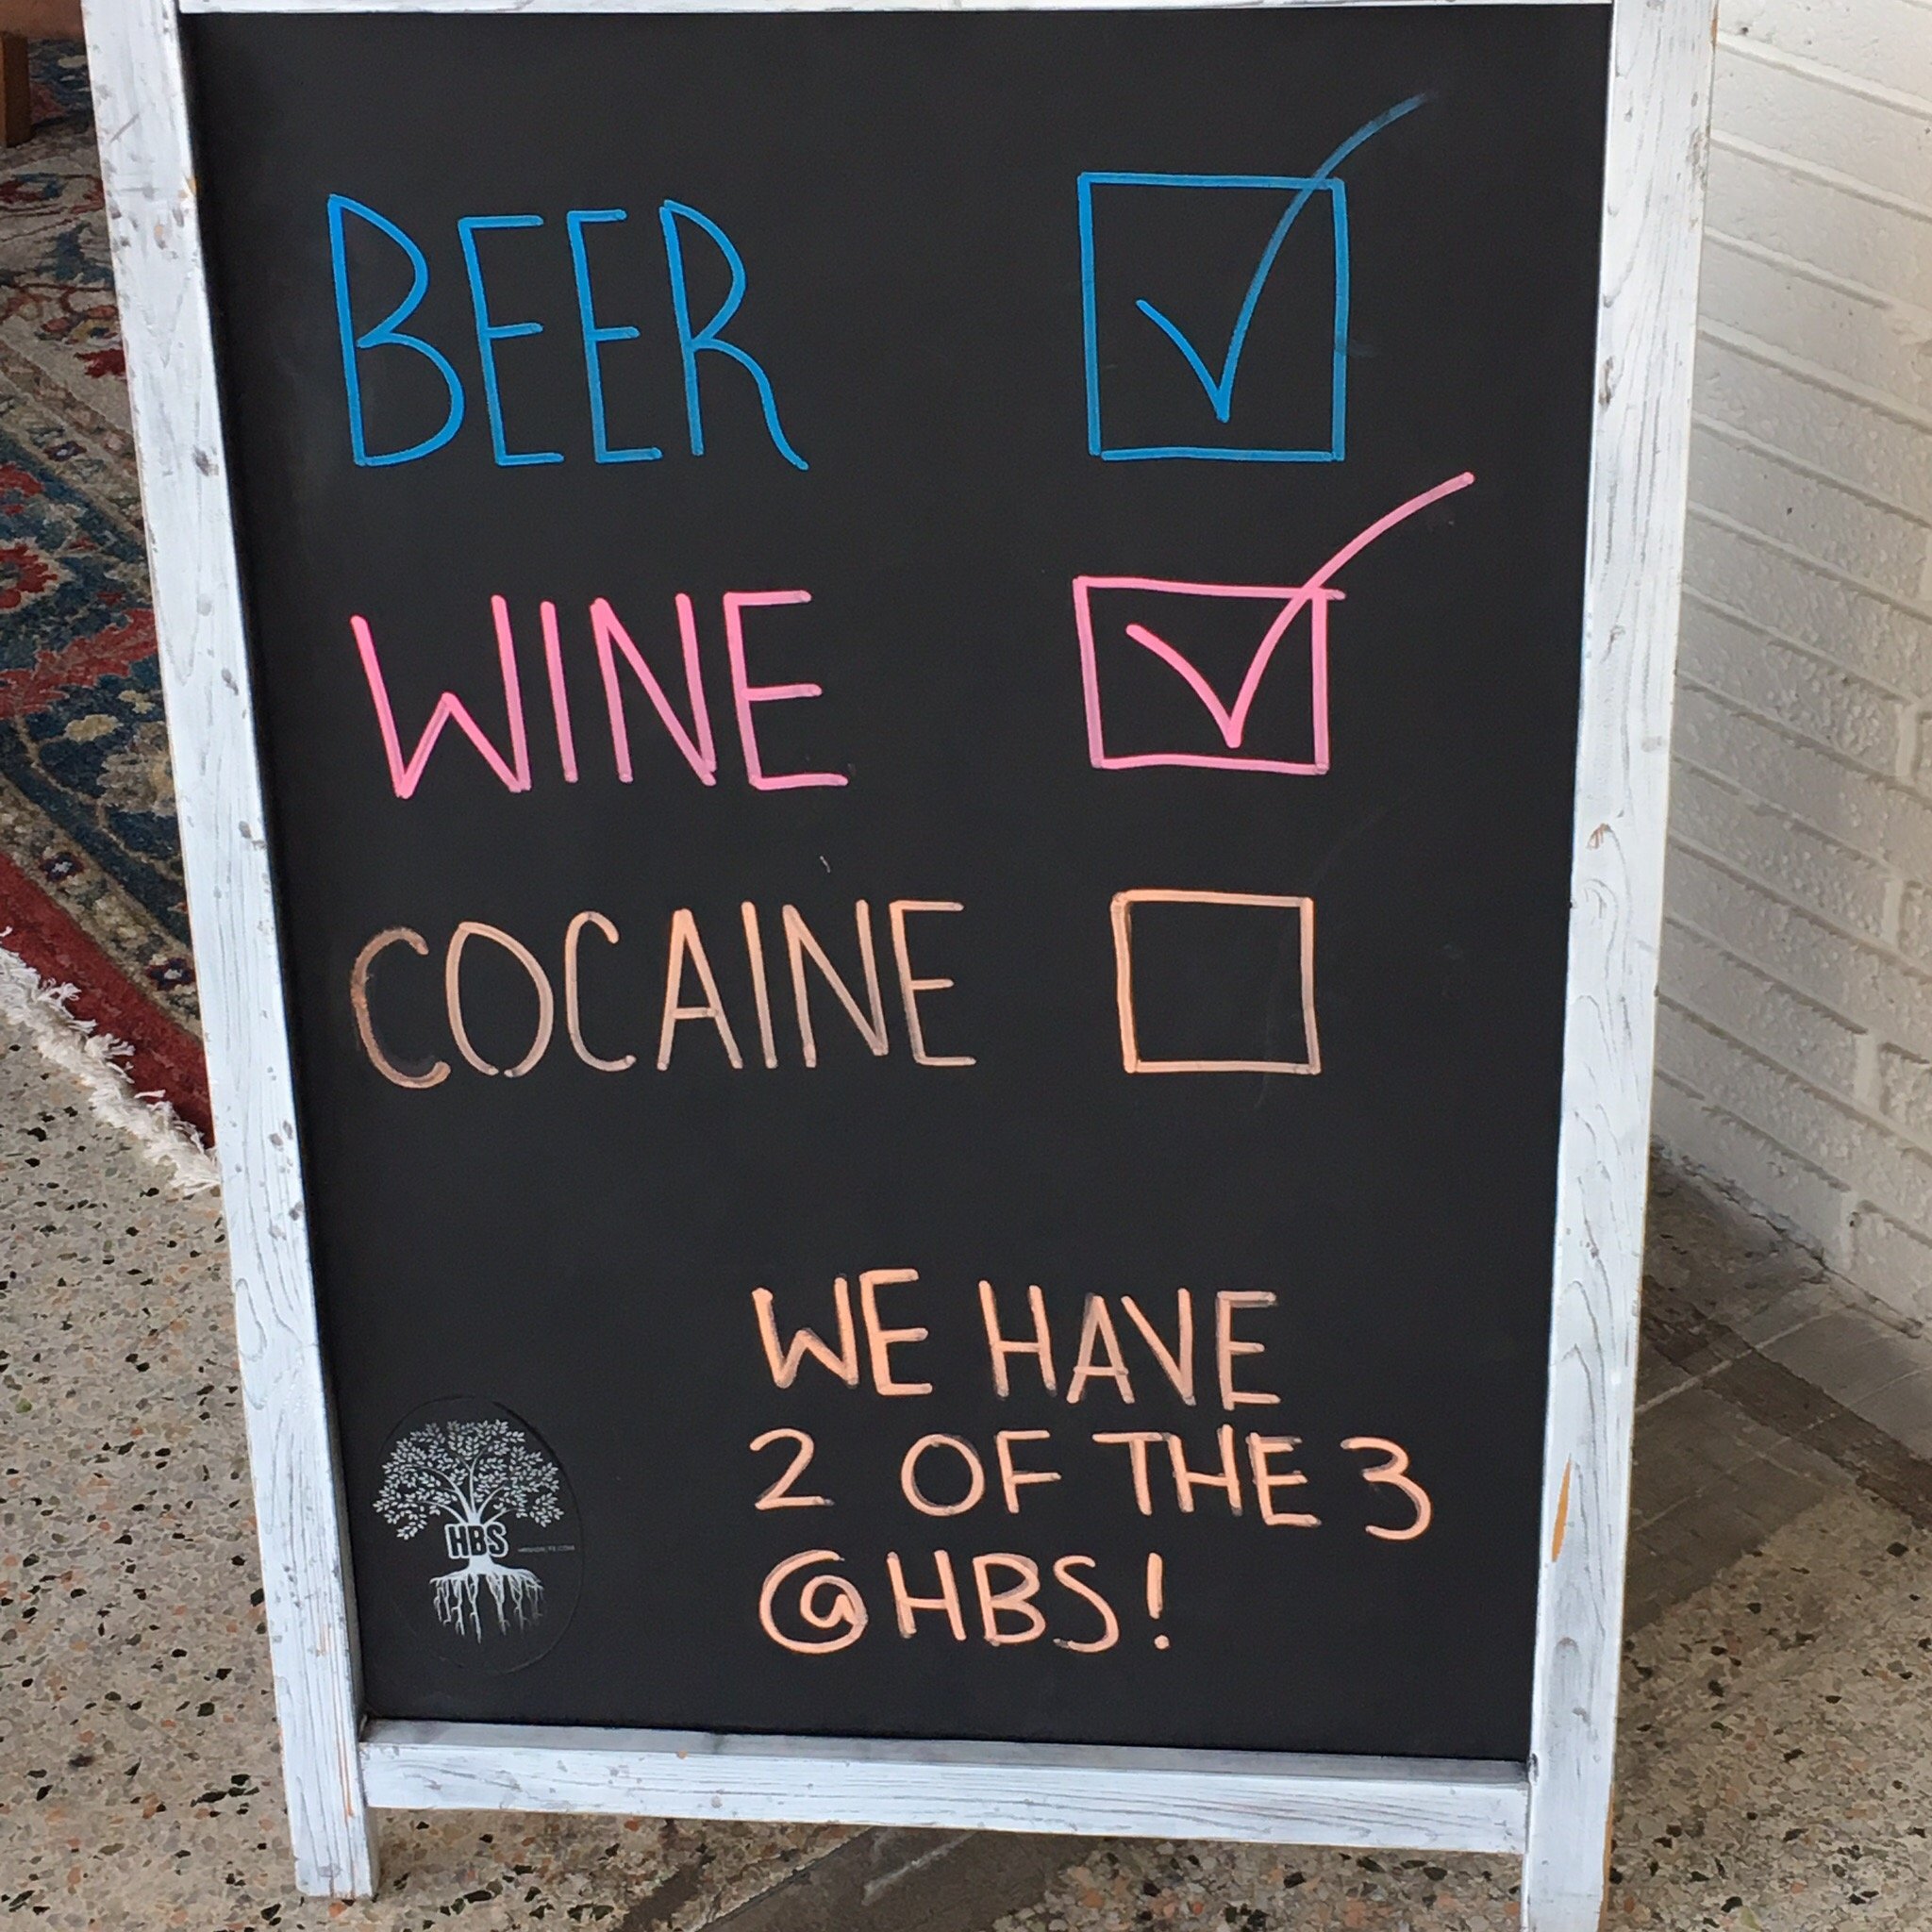 BEER
WINE
COCAINE
WE HAVE
2 OF THE 3
@HBS!
HBS